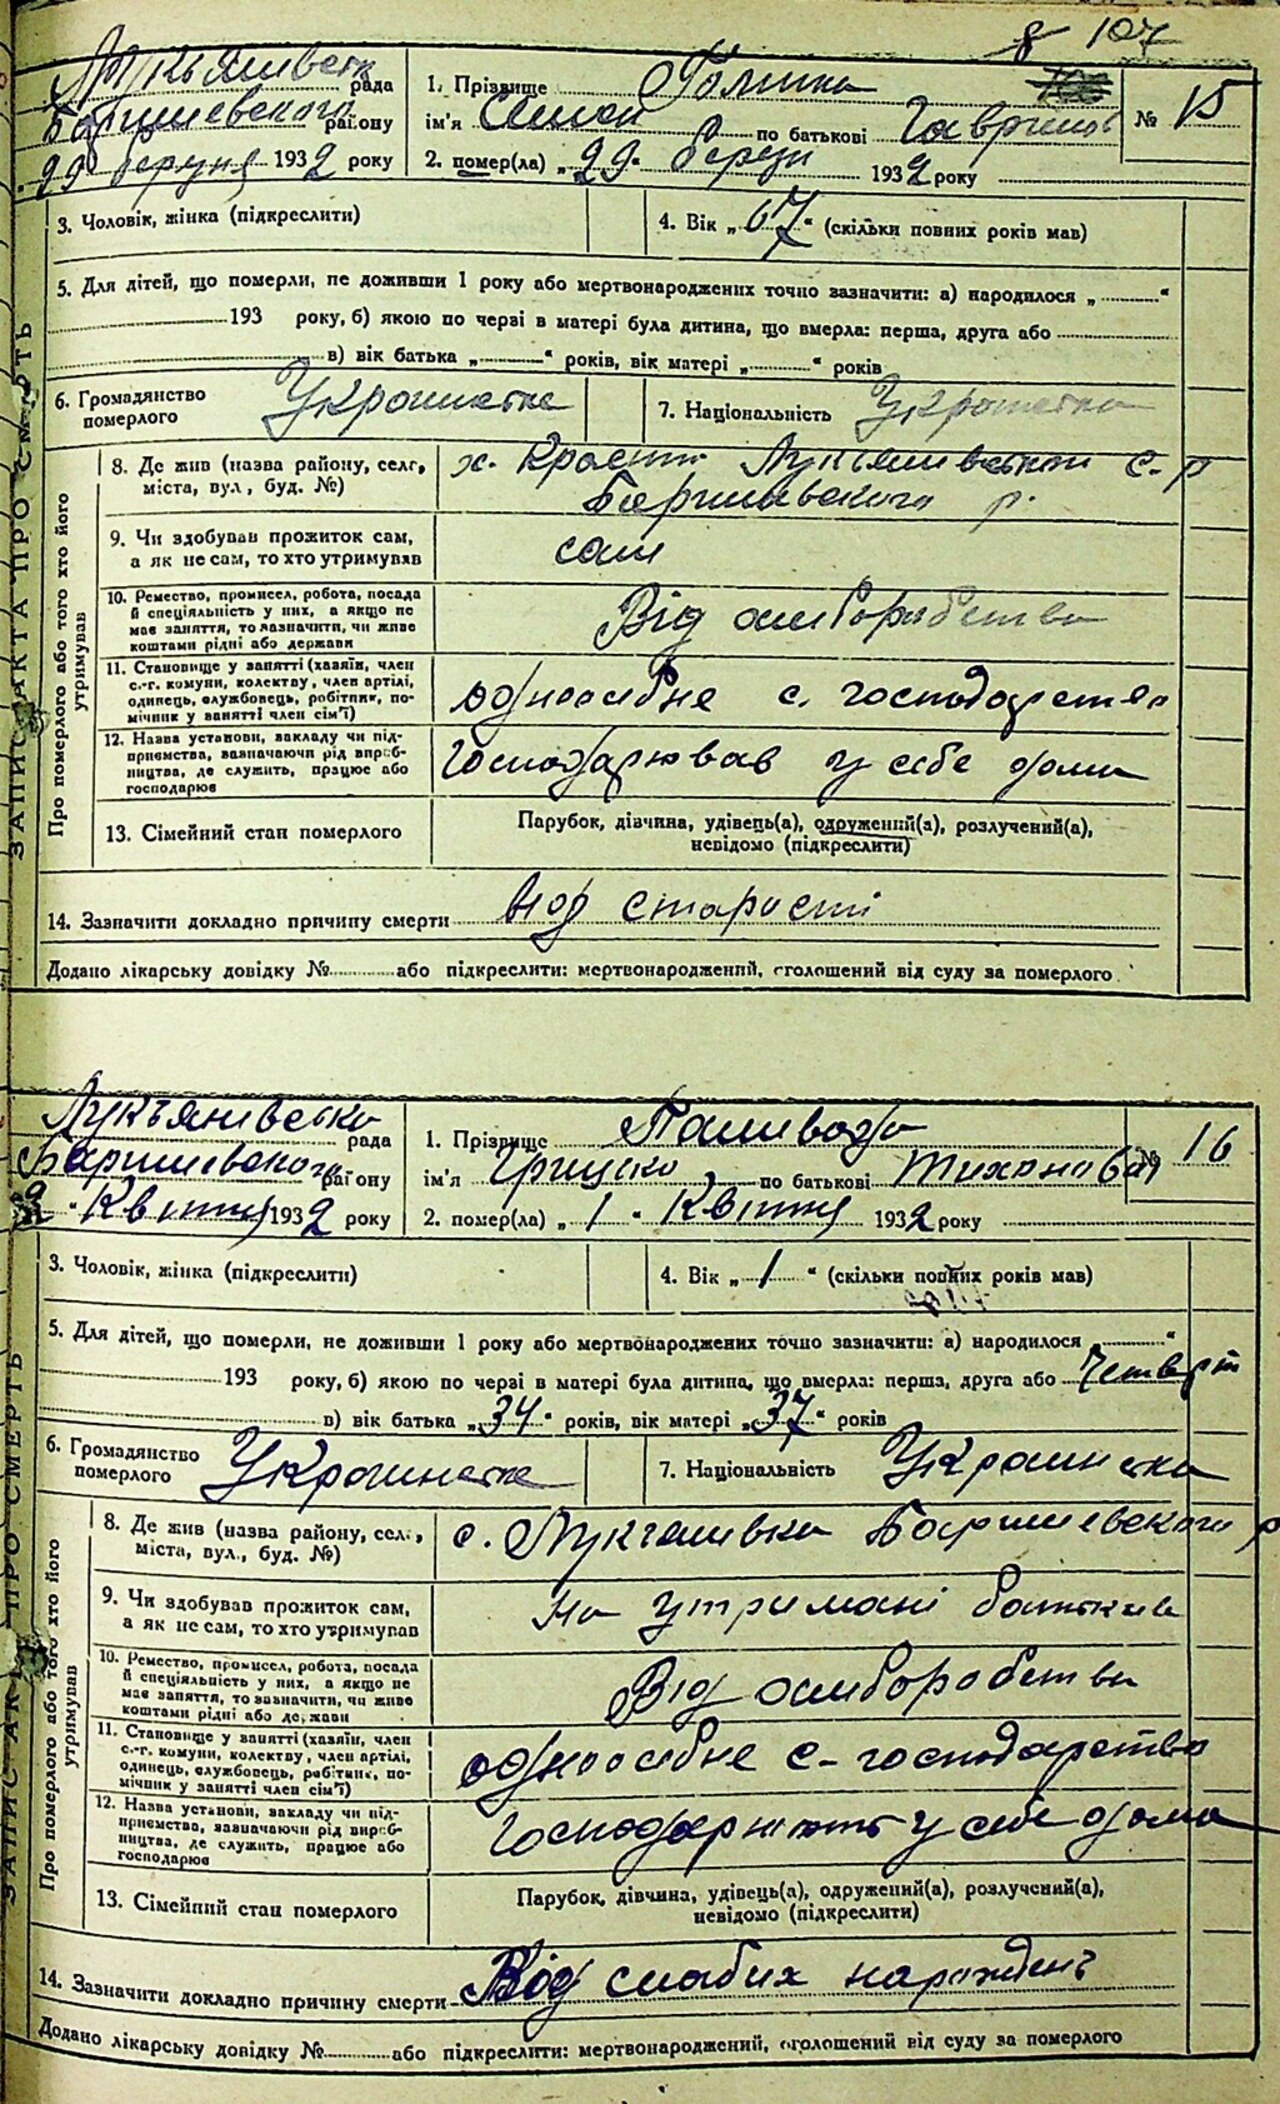 8 107
Лукьянивська рада
Баришевського району
29 березня 1932 року
1. Прізвище
ім'я Семен по батькові Гаврилов
№ 15
2. помер(ла) „ 29 " березн 1932 року
3. Чоловік, жінка (підкреслити)
4. Вік „ 67 " (скільки повних років мав)
5. Для дітей, що померли, не доживши 1 року або мертвонароджених точно зазначити: а) народилося „ "
193 року, б) якою по черзі в матері була дитина, що вмерла: перша, друга або
в) вік батька „ " років, вік матері „ " років
6. Громадянство
померлого
Украинське
7. Національність
ЗАПИС АКТА ПРО СМЕРТЬ
Про померлого або того хто його
утримував
8. Де жив (назва району, село,
міста, вул., буд. №)
х. Лукьянивської с-р
Баришевського р.
9. Чи здобував прожиток сам,
а як не сам, то хто утримував
сам
10. Ремество, промисел, робота, посада
й спеціяльність у них, а якщо не
має заняття, то зазначити, чи живе
коштами рідні або держави
Від хлиборобства
11. Становище у занятті (хазяїн, член
с.-г. комуни, колективу, член артілі,
одинець, службовець, робітник, по-
мічник у занятті член сім'ї)
одноосібне с. господарство
12. Назва установи, закладу чи під-
приємства, зазначаючи рід вироб-
ництва, де служить, працює або
господарює
Господарював у себе дома
13. Сімейний стан померлого
Парубок, дівчина, удівець(а), одружений(а), розлучений(а),
невідомо (підкреслити)
14. Зазначити докладно причину смерти від старості
Додано лікарську довідку № або підкреслити: мертвонароджений, оголошений від суду за померлого
Лукъянивська рада
Баришевського району
2 " Квітня 1932 року
1. Прізвище Паливода
ім'я Грицько по батькові Тиханович
№ 16
2. помер(ла) „ 1 " Квітня 1932 року
3. Чоловік, жінка (підкреслити)
4. Вік „ 1 " (скільки повних років мав)
5. Для дітей, що померли, не доживши 1 року або мертвонароджених точно зазначити: а) народилося „ "
193 року, б) якою по черзі в матері була дитина, що вмерла: перша, друга або четверт
в) вік батька „ 34 " років, вік матері „ 37 " років
6. Громадянство
померлого
Украинське
7. Національність Украинська
ЗАПИС АКТА ПРО СМЕРТЬ
Про померлого або того хто його
утримував
8. Де жив (назва району, село,
міста, вул., буд. №)
с. Лукъянивка Баришевського р
9. Чи здобував прожиток сам,
а як не сам, то хто утримував
На утримані батьків
10. Ремество, промисел, робота, посада
й спеціяльність у них, а якщо не
має заняття, то зазначити, чи живе
коштами рідні або держави
Від хлиборобства
11. Становище у занятті (хазяїн, член
с.-г. комуни, колективу, член артілі,
одинець, службовець, робітник, по-
мічник у занятті член сім'ї)
одноосібне с-господарство
12. Назва установи, закладу чи під-
приємства, зазначаючи рід вироб-
ництва, де служить, працює або
господарює
Господарюють у себе дома
13. Сімейний стан померлого
Парубок, дівчина, удівець(а), одружений(а), розлучений(а),
невідомо (підкреслити)
14. Зазначити докладно причину смерти Від слабих нарождень
Додано лікарську довідку № або підкреслити: мертвонароджений, оголошений від суду за померлого